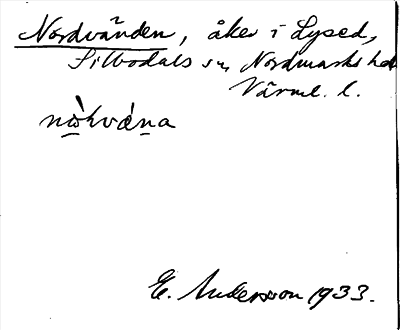 Nordvänden, åker i Lysed,
Silbodals sn, Nordmarks hd
Värml. l.
nòkvána
E. Andersson 1933.